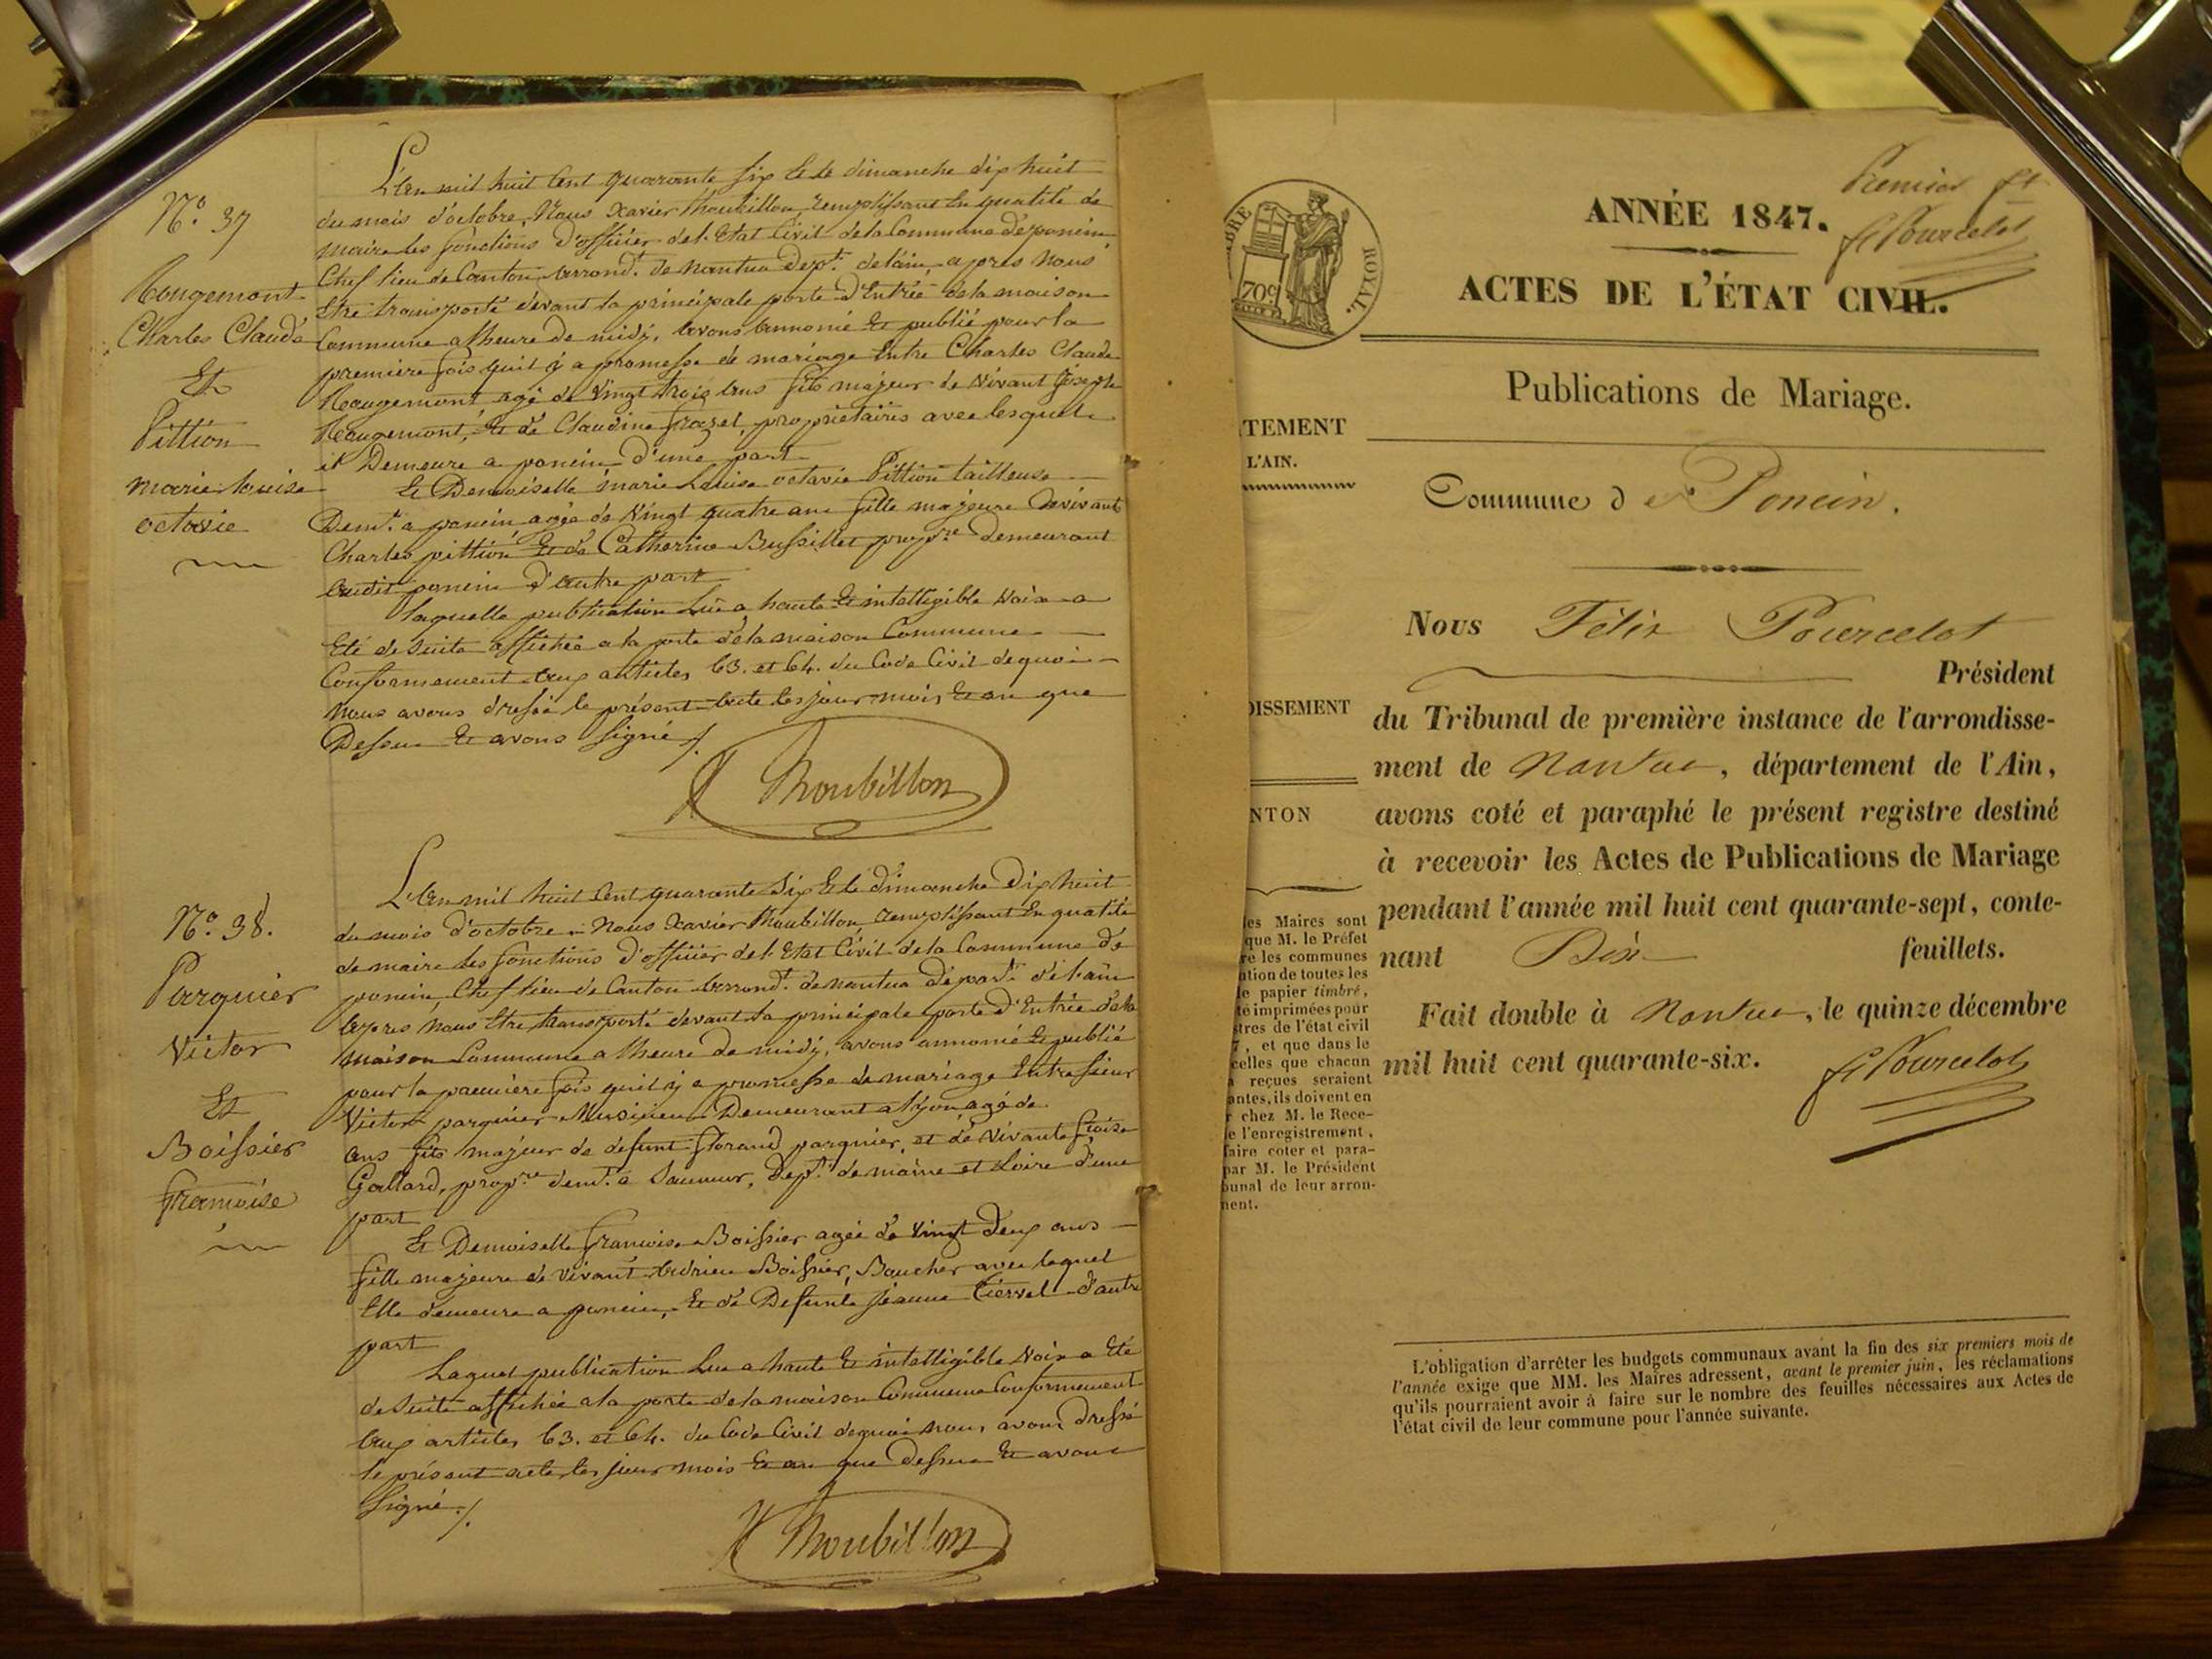 L'an mil huit Cent quarante six et le dimanche dix huit
N.° 37
du mois d'octobre, Nous Xavier Thoubillon, remplissant en qualité de
maire les fonctions d'officier de l'Etat Civil de la Commune de poncin,
Chef lieu de Canton, arrond.t de nantua dep.t de l'ain, apres nous
Rougemont
être transporté devant la principale porte d'Entrée de la maison
Charles Claude
Commune a lheure de midy, avons annoncé et publié pour la
première fois quil y a promesse de mariage Entre Charles Claude
Et
Rougemont agé de vingt trois ans fils majeur de vivant Joseph
Rougemont, et de Claudine frazel, propriétaires avec lesquels
Pittion
il Demeure a poncin d'une part
marie Louise
Et Demoiselle marie Louise octavie Pittion tailleuse
octavie
Dem.t a poncin agée de vingt quatre ans fille majeure de vivants
Charles pittion et de Catherine Bussillet prop.re demeurant
audit poncin d'autre part
laquelle publication lue a haute et intelligible voix a
Eté de suite affichée a la porte de la maison Commune
Conformement aux articles 63. et 64. du Code Civil de quoi
nous avons dressé le présent acte les jour mois et an que
Dessus et avons signé ./.
Thoubillon
L'an mil huit Cent quarante six et le dimanche Dix huit
N.° 38.
du mois d'octobre. Nous Xavier Thoubillon, remplissant En qualité
de maire les fonctions d'officier de l'Etat Civil de la Commune de
Parquier
poncin, Chef lieu de Canton arrond.t de nantua départ.t de l'ain
apres nous être transporté devant la principale porte d'Entrée de la
Victor
maison Commune a lheure de midy, avons annoncé et publié
pour la première fois quil y a promesse de mariage Entre sieur
Et
Victor parquier Musicien Demeurant a lyon, agé de
Boissier
ans fils majeur de defunt florand parquier, et de vivante fcoise
françoise
Gallard, prop.re dem.t a Saumur, Dep.t de maine et Loire d'une
part
Et Demoiselle françoise Boissier agée de vingt deux ans
fille majeure de vivant adrien Boissier, Boucher avec lequel
Elle demeure a poncin, et de Defunte jeanne d'autre
part
Laquel publication Lue a haute et intelligible voix a Eté
de suite affichée a la porte de la maison Commune Conformement
aux articles 63. et 64. du Code Civil de quoi nous avons dressé
le présent acte les jour mois et an que Dessus et avons
Signé ./.
Thoubillon
Premier ft
ANNÉE 1847.
f Pourcelot
ACTES DE L'ÉTAT CIVIL.
BRE ROYAL.
70c
Publications de Mariage.
TEMENT
L'AIN.
Commune de Poncin.
Nous Félix Pourcelot
Président
DISSEMENT
du Tribunal de première instance de l'arrondisse-
ment de Nantua, département de l'Ain,
NTON
avons coté et paraphé le présent registre destiné
à recevoir les Actes de Publications de Mariage
pendant l'année mil huit cent quarante-sept, conte-
nant Dix feuillets.
les Maires sont
que M. le Préfet
re les communes
ation de toutes les
le papier timbré,
té imprimées pour
stres de l'état civil
7, et que dans le
celles que chacun
a reçues seraient
antes, ils doivent en
r chez M. le Rece-
e l'enregistrement,
faire coter et para-
par M. le Président
bunal de leur arron-
ment.
Fait double à Nantua, le quinze décembre
mil huit cent quarante-six.
f Pourcelot
L'obligation d'arrêter les budgets communaux avant la fin des six premiers mois de
l'année exige que MM. les Maires adressent, avant le premier juin, les réclamations
qu'ils pourraient avoir à faire sur le nombre des feuilles nécessaires aux Actes de
l'état civil de leur commune pour l'année suivante.